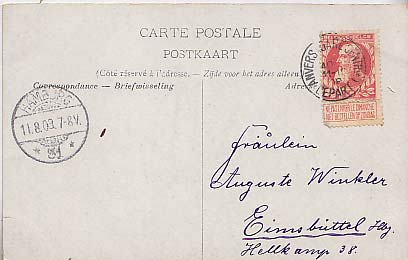 CARTE POSTALE
POSTKAART
(Côté réservé à l'adresse. — Zijde voor het adres alleen.)
Correspondance — Briefwisseling
Adres
ANVERS
DEPART
NE PAS LIVRER LE DIMANCHE
NIET BESTELLEN OP ZONDAG
HAMBURG
11.8.09.7-8V.
Fräulein
Auguste Winkler
Eimsbüttel Hbg.
Hellkamp 38.